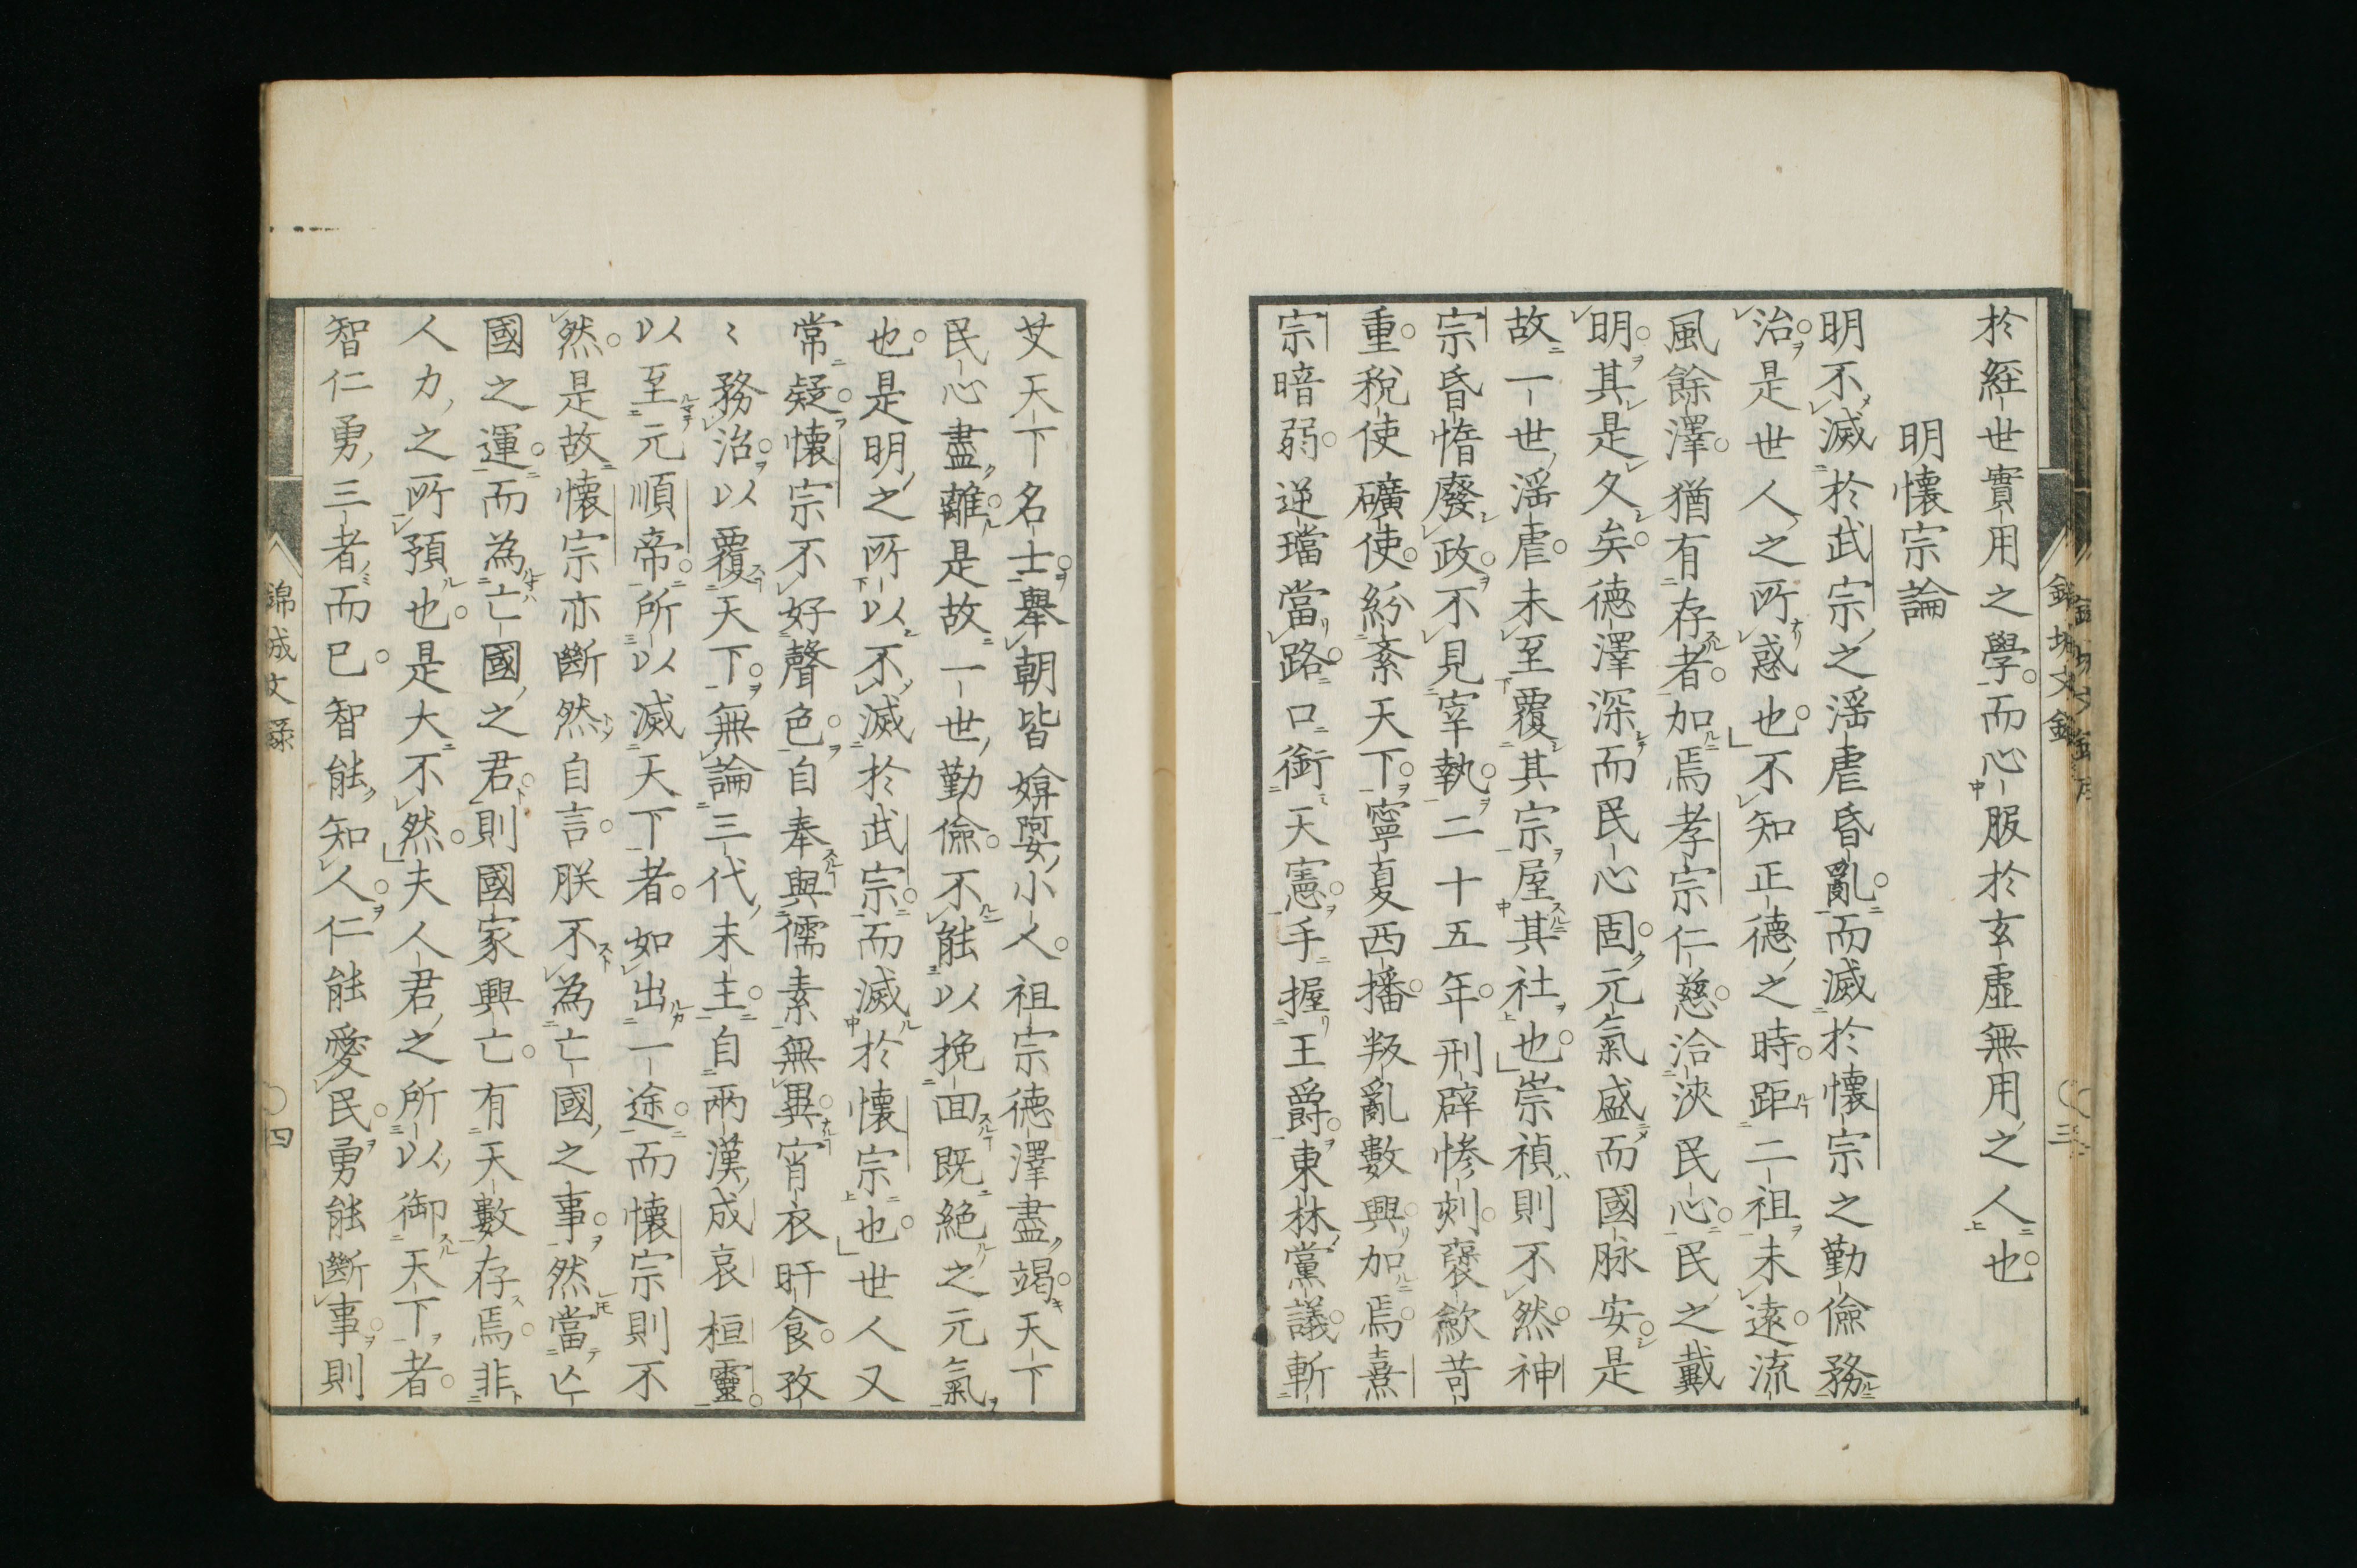 於経世實用之學而心服於玄虛無用之人也
明懷宗論
明不滅於武宗之淫虐昏亂而滅於懷宗之勤儉務
治是世人之所惑也不知正德之時距二祖未遠流
風餘澤猶有存者加焉孝宗仁慈洽浹民心民之戴
明其是久矣德澤深而民心固元氣盛而國脉安是
故一世淫虐未至覆其宗屋其社也崇禎則不然神
宗昏惰廢政不見宰執二十五年刑辟惨刻褒歛苛
重税使礦使紛紊天下寧夏西播叛亂數興加焉熹
宗暗弱逆璫當路口銜天憲手握王爵東林黨議斬
艾天下名士舉朝皆媕娿小人祖宗德澤盡竭天下
民心盡離是故一世勤儉不能以挽回既絶之元氣
也是明之所以不滅於武宗而滅於懷宗也世人又
常疑懷宗不好聲色自奉與儒素無異宵衣旰食孜
〻務治以覆天下無論三代末主自兩漢成哀桓靈
以至元順帝所以滅天下者如出一途而懷宗則不
然是故懷宗亦斷然自言朕不為亡國之事然當亾
國之運而為亡國之君則國家興亡有天數存焉非
人力之所預也是大不然夫人君之所以御天下者
智仁勇三者而已智能知人仁能愛民勇能斷事則
錦城文録
四
三